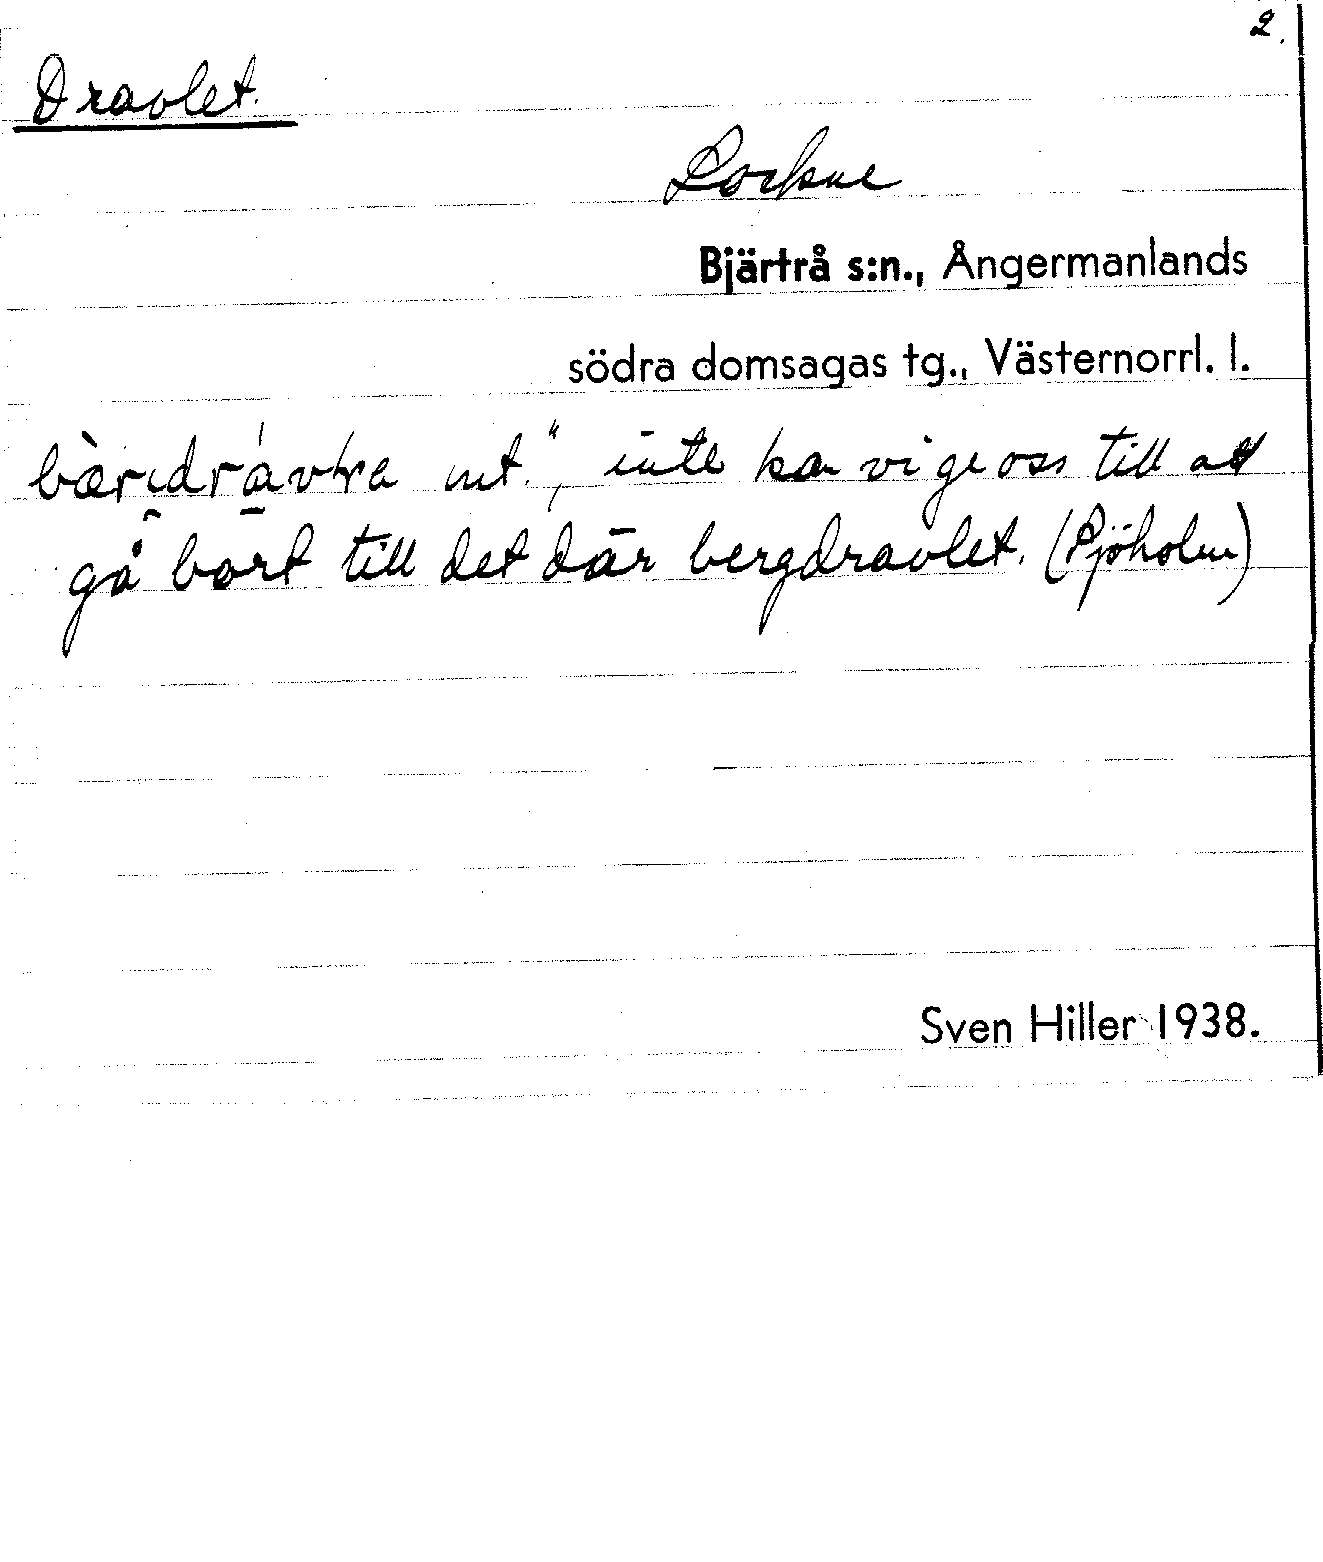 2.
Dravlet.
Lockne
Bjärtrå s:n., Ångermanlands
södra domsagas tg., Västernorrl. l.
int.", inte kan vi ge oss till att
gå bort till det där bergdravlet. (Sjöholm)
Sven Hiller 1938.